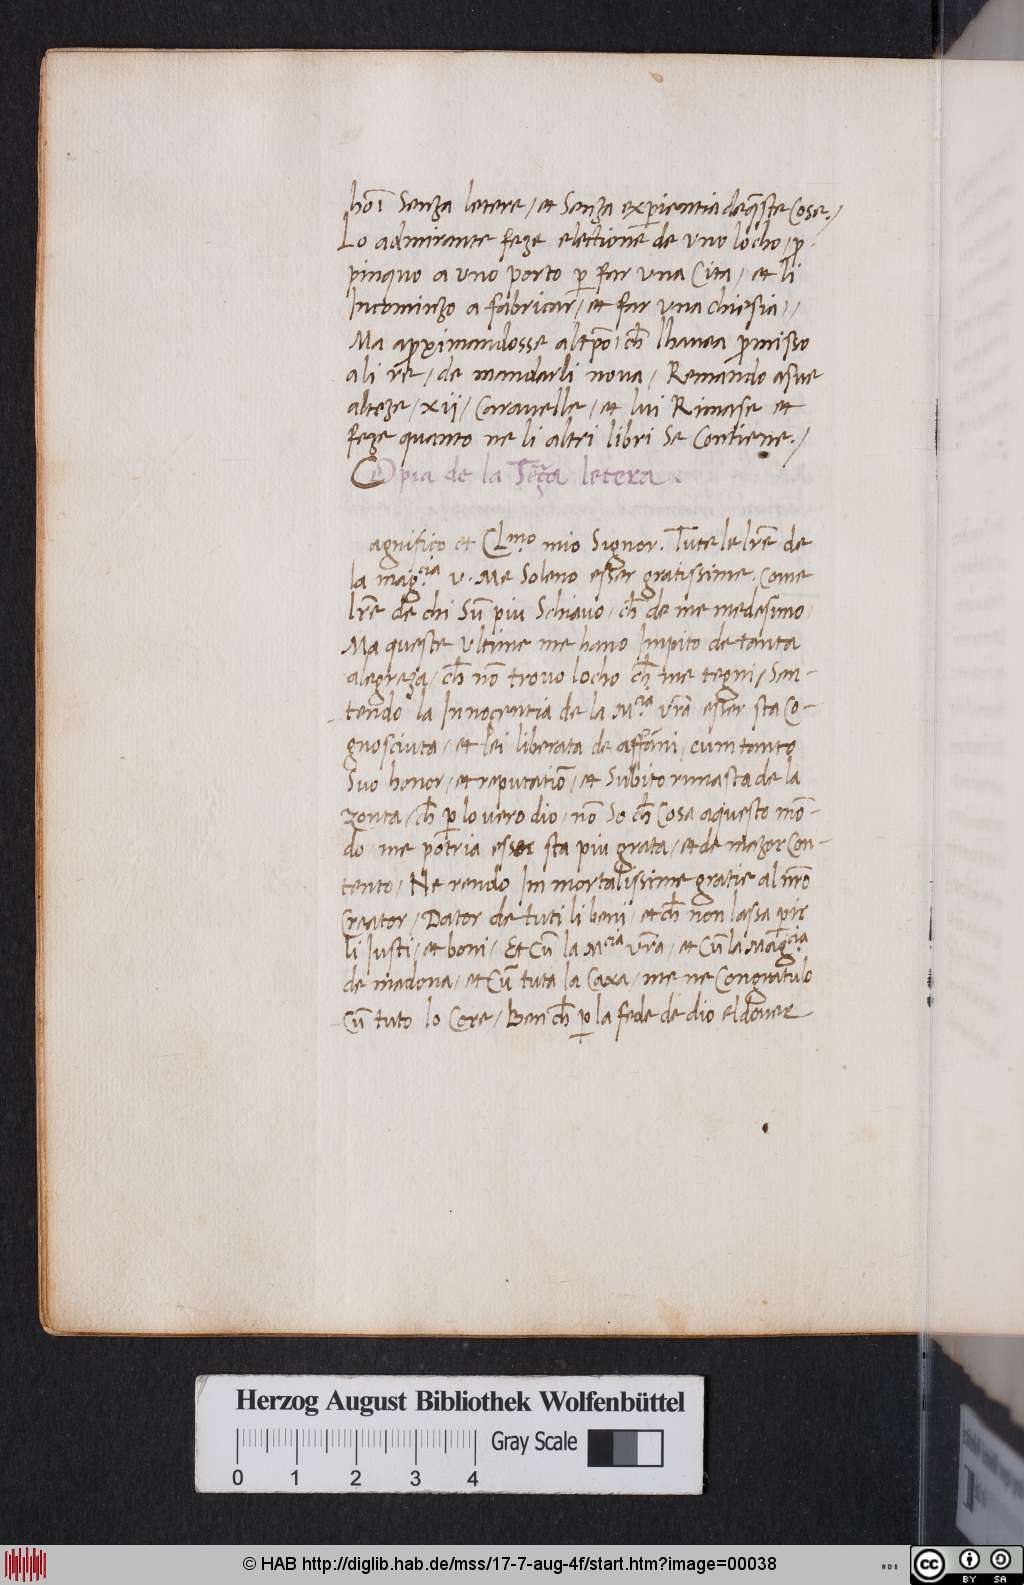 hoī Senza letere / et Senza exꝑientia de q̄ste Cose ./
Lo admirante feze electione de uno locho / ꝓ
pinquo a uno porto ꝑ far una Cita / et li
Incominzo a fabricar / et far una chiesia /
Ma aproximandosse al tp̄o / ch̄ lhauea promisso
a li re / de mandarli noua / Remando a sue
alteze / xij / Carauelle / et lui Rimase et
feze quanto ne li altri libri Se Contiene ./
Copia de la Terza letera .
agnifico et Cl.mo mio Signor . Tute le lr̄e de
la mag.cia v . Me Soleno esser gratissime . Come
lr̄e de chi Sū piu Schiauo / ch̄ de me medesimo .
Ma queste ultime me hano Impito de tanta
alegreza / ch̄ nō trouo locho ch̄ me tegni / Sen-
tendo la Innocentia de la M.cia vr̄a esser sta Co-
gnosciuta / et lei liberata de affāni / cum tanto
Suo honor / et reputatiō / et Subito rimasta de la
zonta / ch̄ ꝑ lo uero dio / nō So ch̄ Cosa a questo mō-
do me potria esser sta piu grata / et de mazor Con-
tento / Ne rendo Inmortalissime gratie al nr̄o
Creator / Dator de tuti li benij / et ch̄ non lassa perir
li Iusti / et boni / Et Cū la M.cia vr̄a / et Cū la Mag.cia
de madona / et Cū tuta la Caxa / me ne Congratulo
Cū tuto lo Core / Ben ch̄ ꝑ la fede de dio el douer
Herzog August Bibliothek Wolfenbüttel
Gray Scale
0 1 2 3 4
© HAB http://diglib.hab.de/mss/17-7-aug-4f/start.htm?image=00038
WDB
cc BY SA